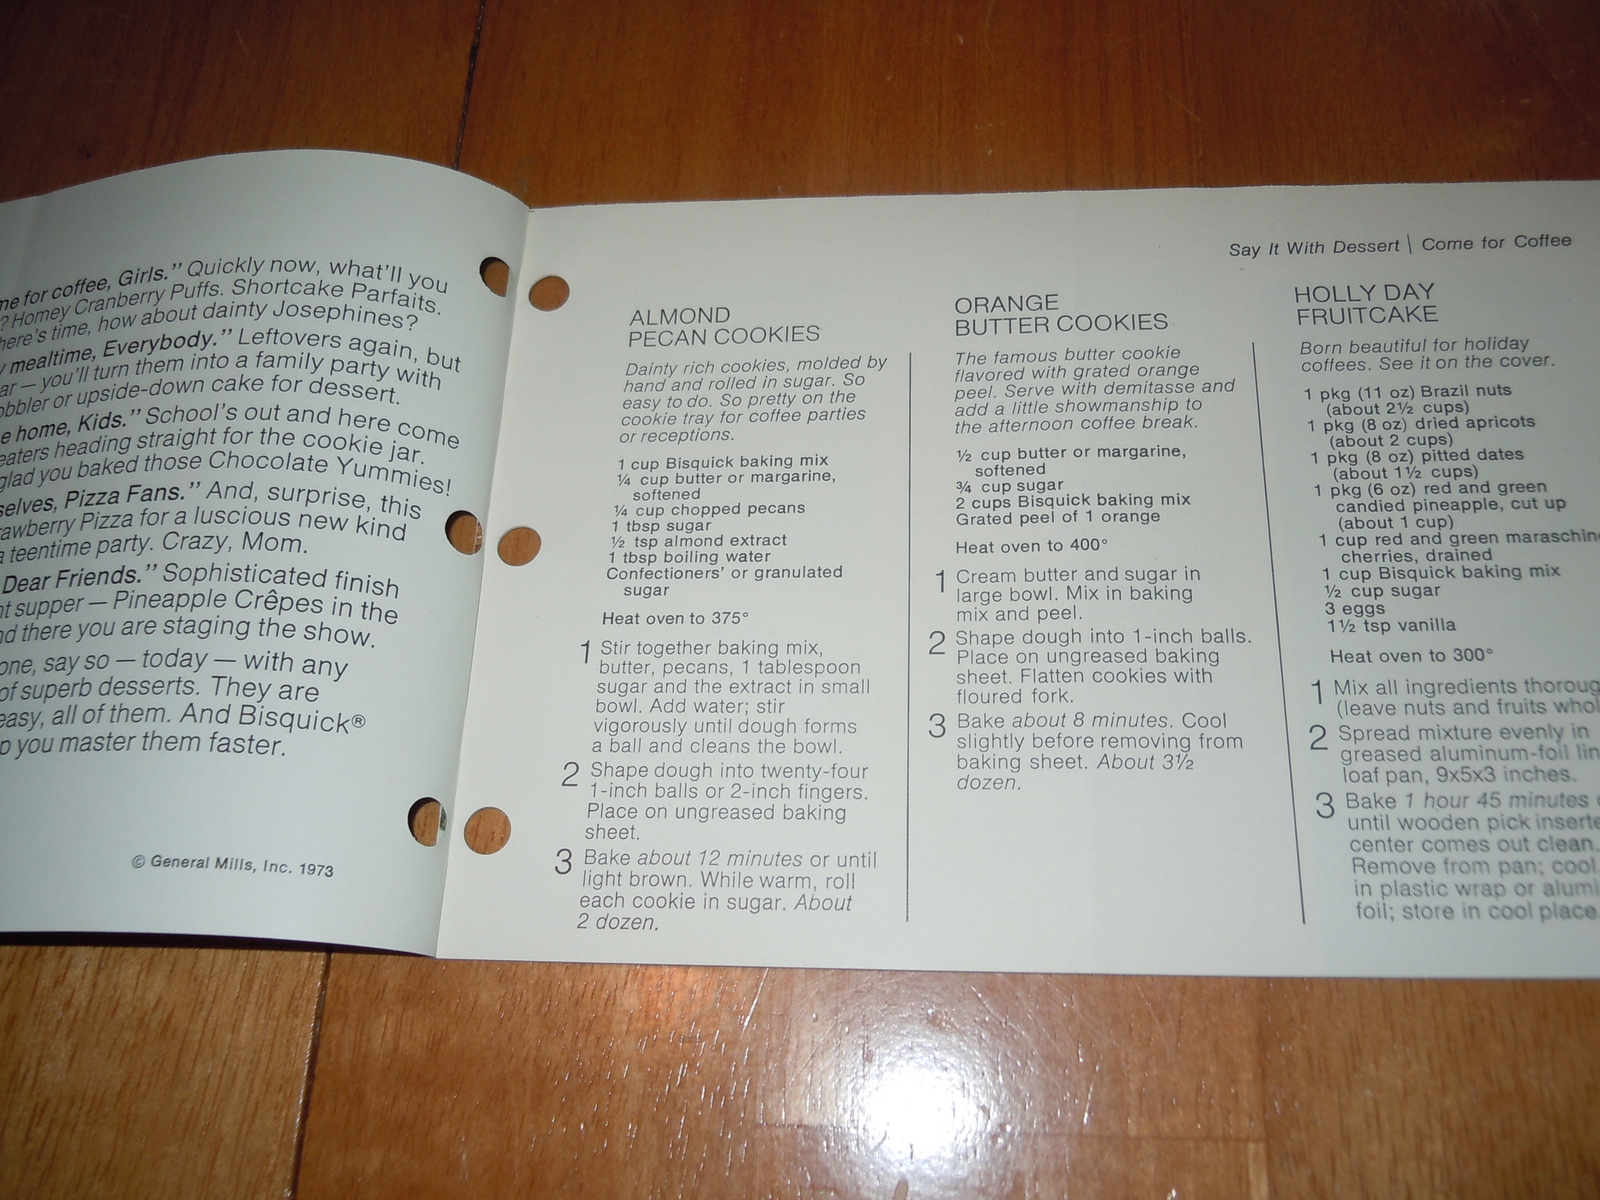 me for coffee, Girls." Quickly now, what'll you
? Homey Cranberry Puffs. Shortcake Parfaits.
here's time, how about dainty Josephines?
mealtime, Everybody." Leftovers again, but
ar — you'll turn them into a family party with
obbler or upside-down cake for dessert.
e home, Kids." School's out and here come
eaters heading straight for the cookie jar.
glad you baked those Chocolate Yummies!
selves, Pizza Fans." And, surprise, this
rawberry Pizza for a luscious new kind
a teentime party. Crazy, Mom.
Dear Friends." Sophisticated finish
nt supper — Pineapple Crêpes in the
nd there you are staging the show.
one, say so — today — with any
of superb desserts. They are
easy, all of them. And Bisquick®
p you master them faster.
© General Mills, Inc. 1973
Say It With Dessert | Come for Coffee
ALMOND
PECAN COOKIES
Dainty rich cookies, molded by
hand and rolled in sugar. So
easy to do. So pretty on the
cookie tray for coffee parties
or receptions.
1 cup Bisquick baking mix
¼ cup butter or margarine,
softened
¼ cup chopped pecans
1 tbsp sugar
½ tsp almond extract
1 tbsp boiling water
Confectioners' or granulated
sugar
Heat oven to 375°
1 Stir together baking mix,
butter, pecans, 1 tablespoon
sugar and the extract in small
bowl. Add water; stir
vigorously until dough forms
a ball and cleans the bowl.
2 Shape dough into twenty-four
1-inch balls or 2-inch fingers.
Place on ungreased baking
sheet.
3 Bake about 12 minutes or until
light brown. While warm, roll
each cookie in sugar. About
2 dozen.
ORANGE
BUTTER COOKIES
The famous butter cookie
flavored with grated orange
peel. Serve with demitasse and
add a little showmanship to
the afternoon coffee break.
½ cup butter or margarine,
softened
¾ cup sugar
2 cups Bisquick baking mix
Grated peel of 1 orange
Heat oven to 400°
1 Cream butter and sugar in
large bowl. Mix in baking
mix and peel.
2 Shape dough into 1-inch balls.
Place on ungreased baking
sheet. Flatten cookies with
floured fork.
3 Bake about 8 minutes. Cool
slightly before removing from
baking sheet. About 3½
dozen.
HOLLY DAY
FRUITCAKE
Born beautiful for holiday
coffees. See it on the cover.
1 pkg (11 oz) Brazil nuts
(about 2½ cups)
1 pkg (8 oz) dried apricots
(about 2 cups)
1 pkg (8 oz) pitted dates
(about 1½ cups)
1 pkg (6 oz) red and green
candied pineapple, cut up
(about 1 cup)
1 cup red and green maraschino
cherries, drained
1 cup Bisquick baking mix
½ cup sugar
3 eggs
1½ tsp vanilla
Heat oven to 300°
1 Mix all ingredients thoroug
(leave nuts and fruits whol
2 Spread mixture evenly in
greased aluminum-foil lin
loaf pan, 9x5x3 inches.
3 Bake 1 hour 45 minutes
until wooden pick inserte
center comes out clean.
Remove from pan; cool.
in plastic wrap or alumi
foil; store in cool place.